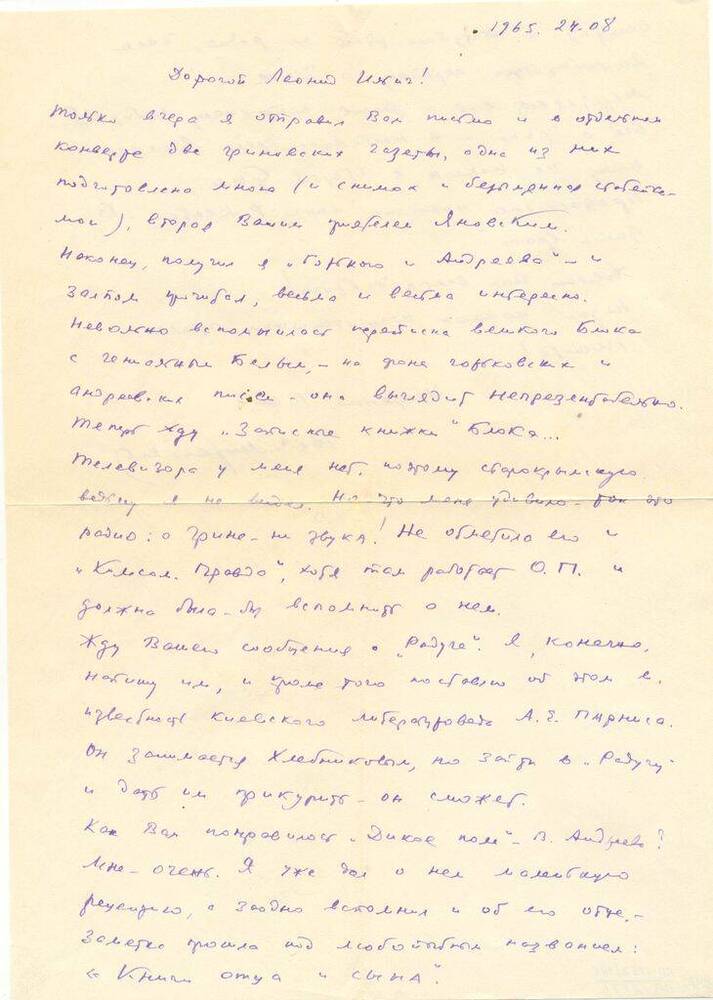 1965. 24.08
Дорогой Леонид Ильич!
Только вчера я отправил Вам письмо и в отдельном
конверте две гриновских газеты, одна из них
подготовлена мною (и снимок и безымянная статейка-
мои), вторая Вашим приятелем Яновским.
Наконец, получил я „Горького и Андреева" – и
залпом прочитал, весьма и весьма интересно.
Невольно вспомнилась переписка великого Блока
с гениальным Белым, – на фоне горьковских и
андреевских писем – она выглядит непрезентабельно.
Теперь жду „Записные книжки" Блока...
Телевизора у меня нет, поэтому старокрымскую
я не видел. Но что меня удивило – так это
радио: о Грине – ни звука! Не отметила его и
„Комсом. Правда", хотя там работает О.П. и
должна была-бы вспомнить о нем.
Жду Вашего сообщения о „Радуге". Я, конечно,
напишу им, и кроме того поставлю об этом в
известность киевского литературоведа А.Е. Парниса.
Он занимается Хлебниковым, но зайти в „Радугу"
и дать им прикурить – он сможет.
Как Вам понравилось „Дикое поле" – В. Андреева?
Мне – очень. Я уже дал о нем маленькую
рецензию, а заодно вспомнил и об его отце. –
Заметка прошла под любопытным названием:
„Книги отца и сына".